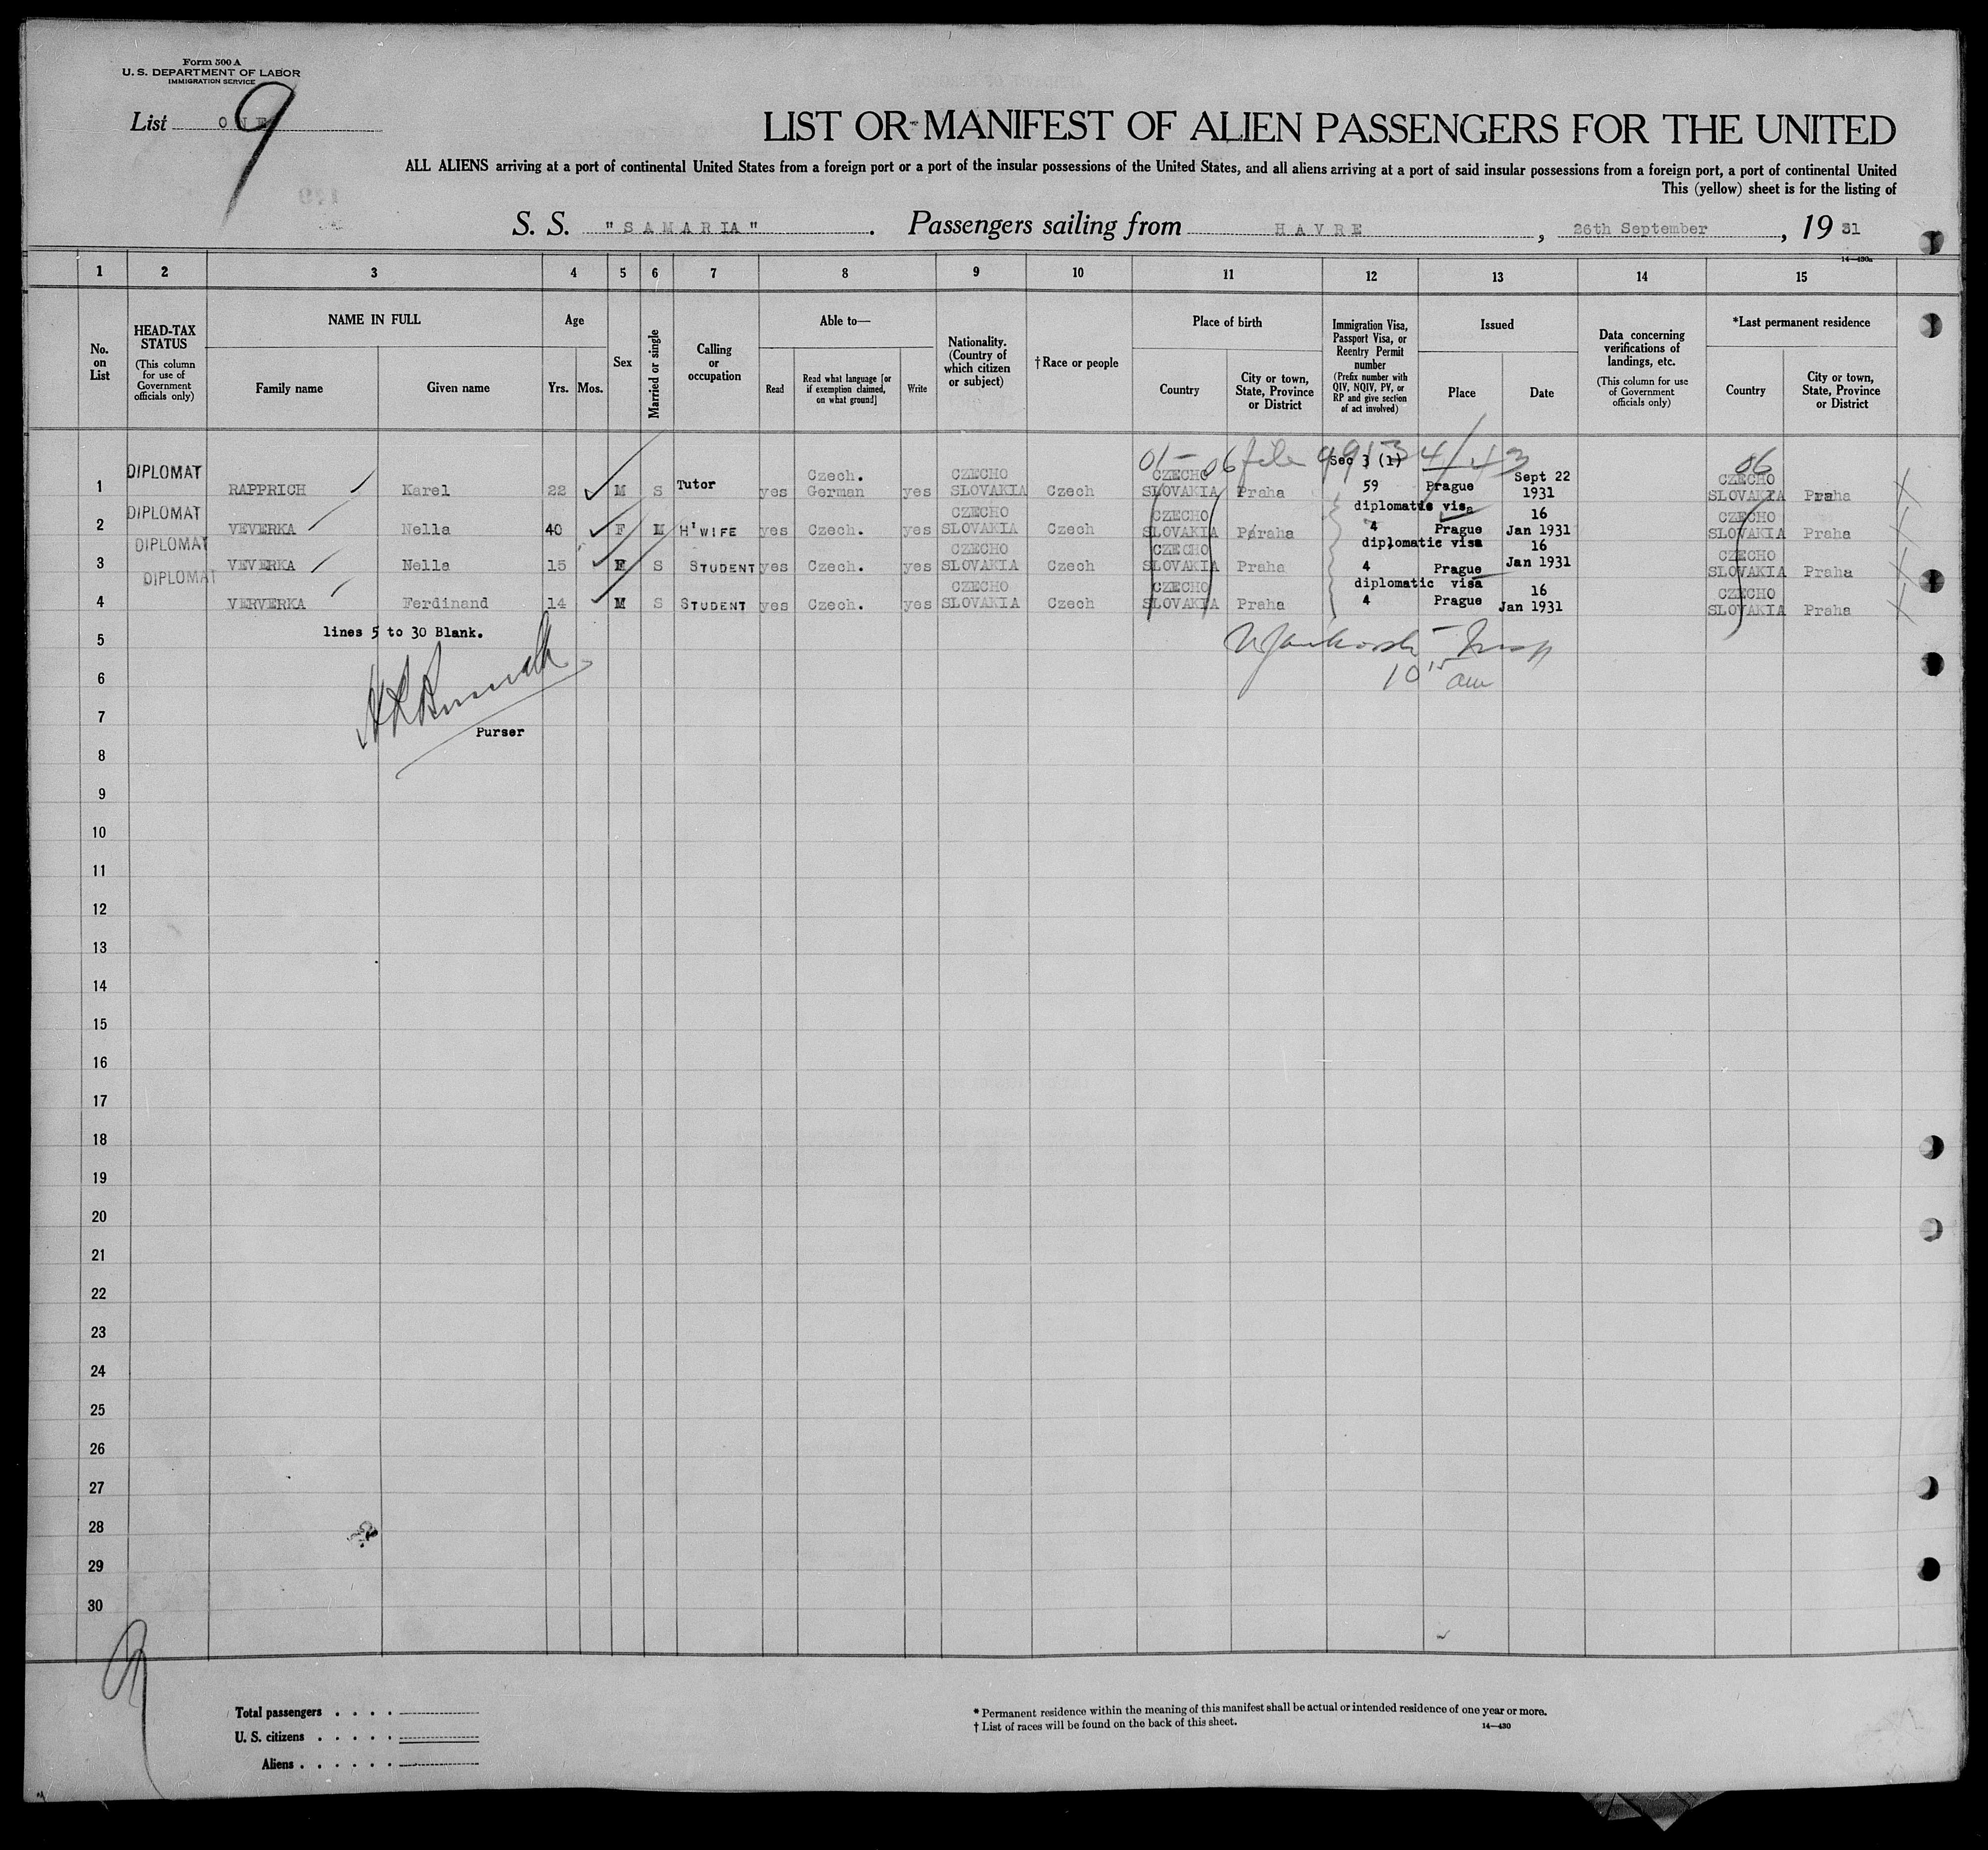 Form 500 A
U. S. DEPARTMENT OF LABOR
IMMIGRATION SERVICE
List ONE
9
LIST OR MANIFEST OF ALIEN PASSENGERS FOR THE UNITED
ALL ALIENS arriving at a port of continental United States from a foreign port or a port of the insular possessions of the United States, and all aliens arriving at a port of said insular possessions from a foreign port, a port of continental United
This (yellow) sheet is for the listing of
S. S. "SAMARIA". Passengers sailing from HAVRE, 26th September, 19 31
14—430a
1 2 3 4 5 6 7 8 9 10 11 12 13 14 15
No. on List
HEAD-TAX STATUS
(This column for use of Government officials only)
NAME IN FULL
Family name Given name
Age
Yrs. Mos.
Sex
Married or single
Calling or occupation
Able to—
Read Read what language [or if exemption claimed, on what ground] Write
Nationality. (Country of which citizen or subject)
†Race or people
Place of birth
Country City or town, State, Province or District
Immigration Visa, Passport Visa, or Reentry Permit number
(Prefix number with QIV, NQIV, PV, or RP and give section of act involved)
Issued
Place Date
Data concerning verifications of landings, etc.
(This column for use of Government officials only)
*Last permanent residence
Country City or town, State, Province or District
01- 06 file 99134/43 06
Sec 3 (1)
1 DIPLOMAT RAPPRICH Karel 22 M S Tutor yes Czech. German yes CZECHO SLOVAKIA Czech CZECHO SLOVAKIA Praha 59 Prague Sept 22 1931 CZECHO SLOVAKIA Praha
diplomatic visa
2 DIPLOMAT VEVERKA Nella 40 F M H'WIFE yes Czech. yes CZECHO SLOVAKIA Czech CZECHO SLOVAKIA Paraha 4 Prague 16 Jan 1931 CZECHO SLOVAKIA Praha
diplomatic visa
3 DIPLOMAT VEVERKA Nella 15 F S STUDENT yes Czech. yes CZECHO SLOVAKIA Czech CZECHO SLOVAKIA Praha 4 Prague 16 Jan 1931 CZECHO SLOVAKIA Praha
diplomatic visa
4 DIPLOMAT VERVERKA Ferdinand 14 M S STUDENT yes Czech. yes CZECHO SLOVAKIA Czech CZECHO SLOVAKIA Praha 4 Prague 16 Jan 1931 CZECHO SLOVAKIA Praha
lines 5 to 30 Blank.
5
Insp
6
10 15 am
7
Purser
8
9
10
11
12
13
14
15
16
17
18
19
20
21
22
23
24
25
26
27
28
29
30
Total passengers . . . .
U. S. citizens . . . . .
Aliens . . . . . .
* Permanent residence within the meaning of this manifest shall be actual or intended residence of one year or more.
† List of races will be found on the back of this sheet.
14—430